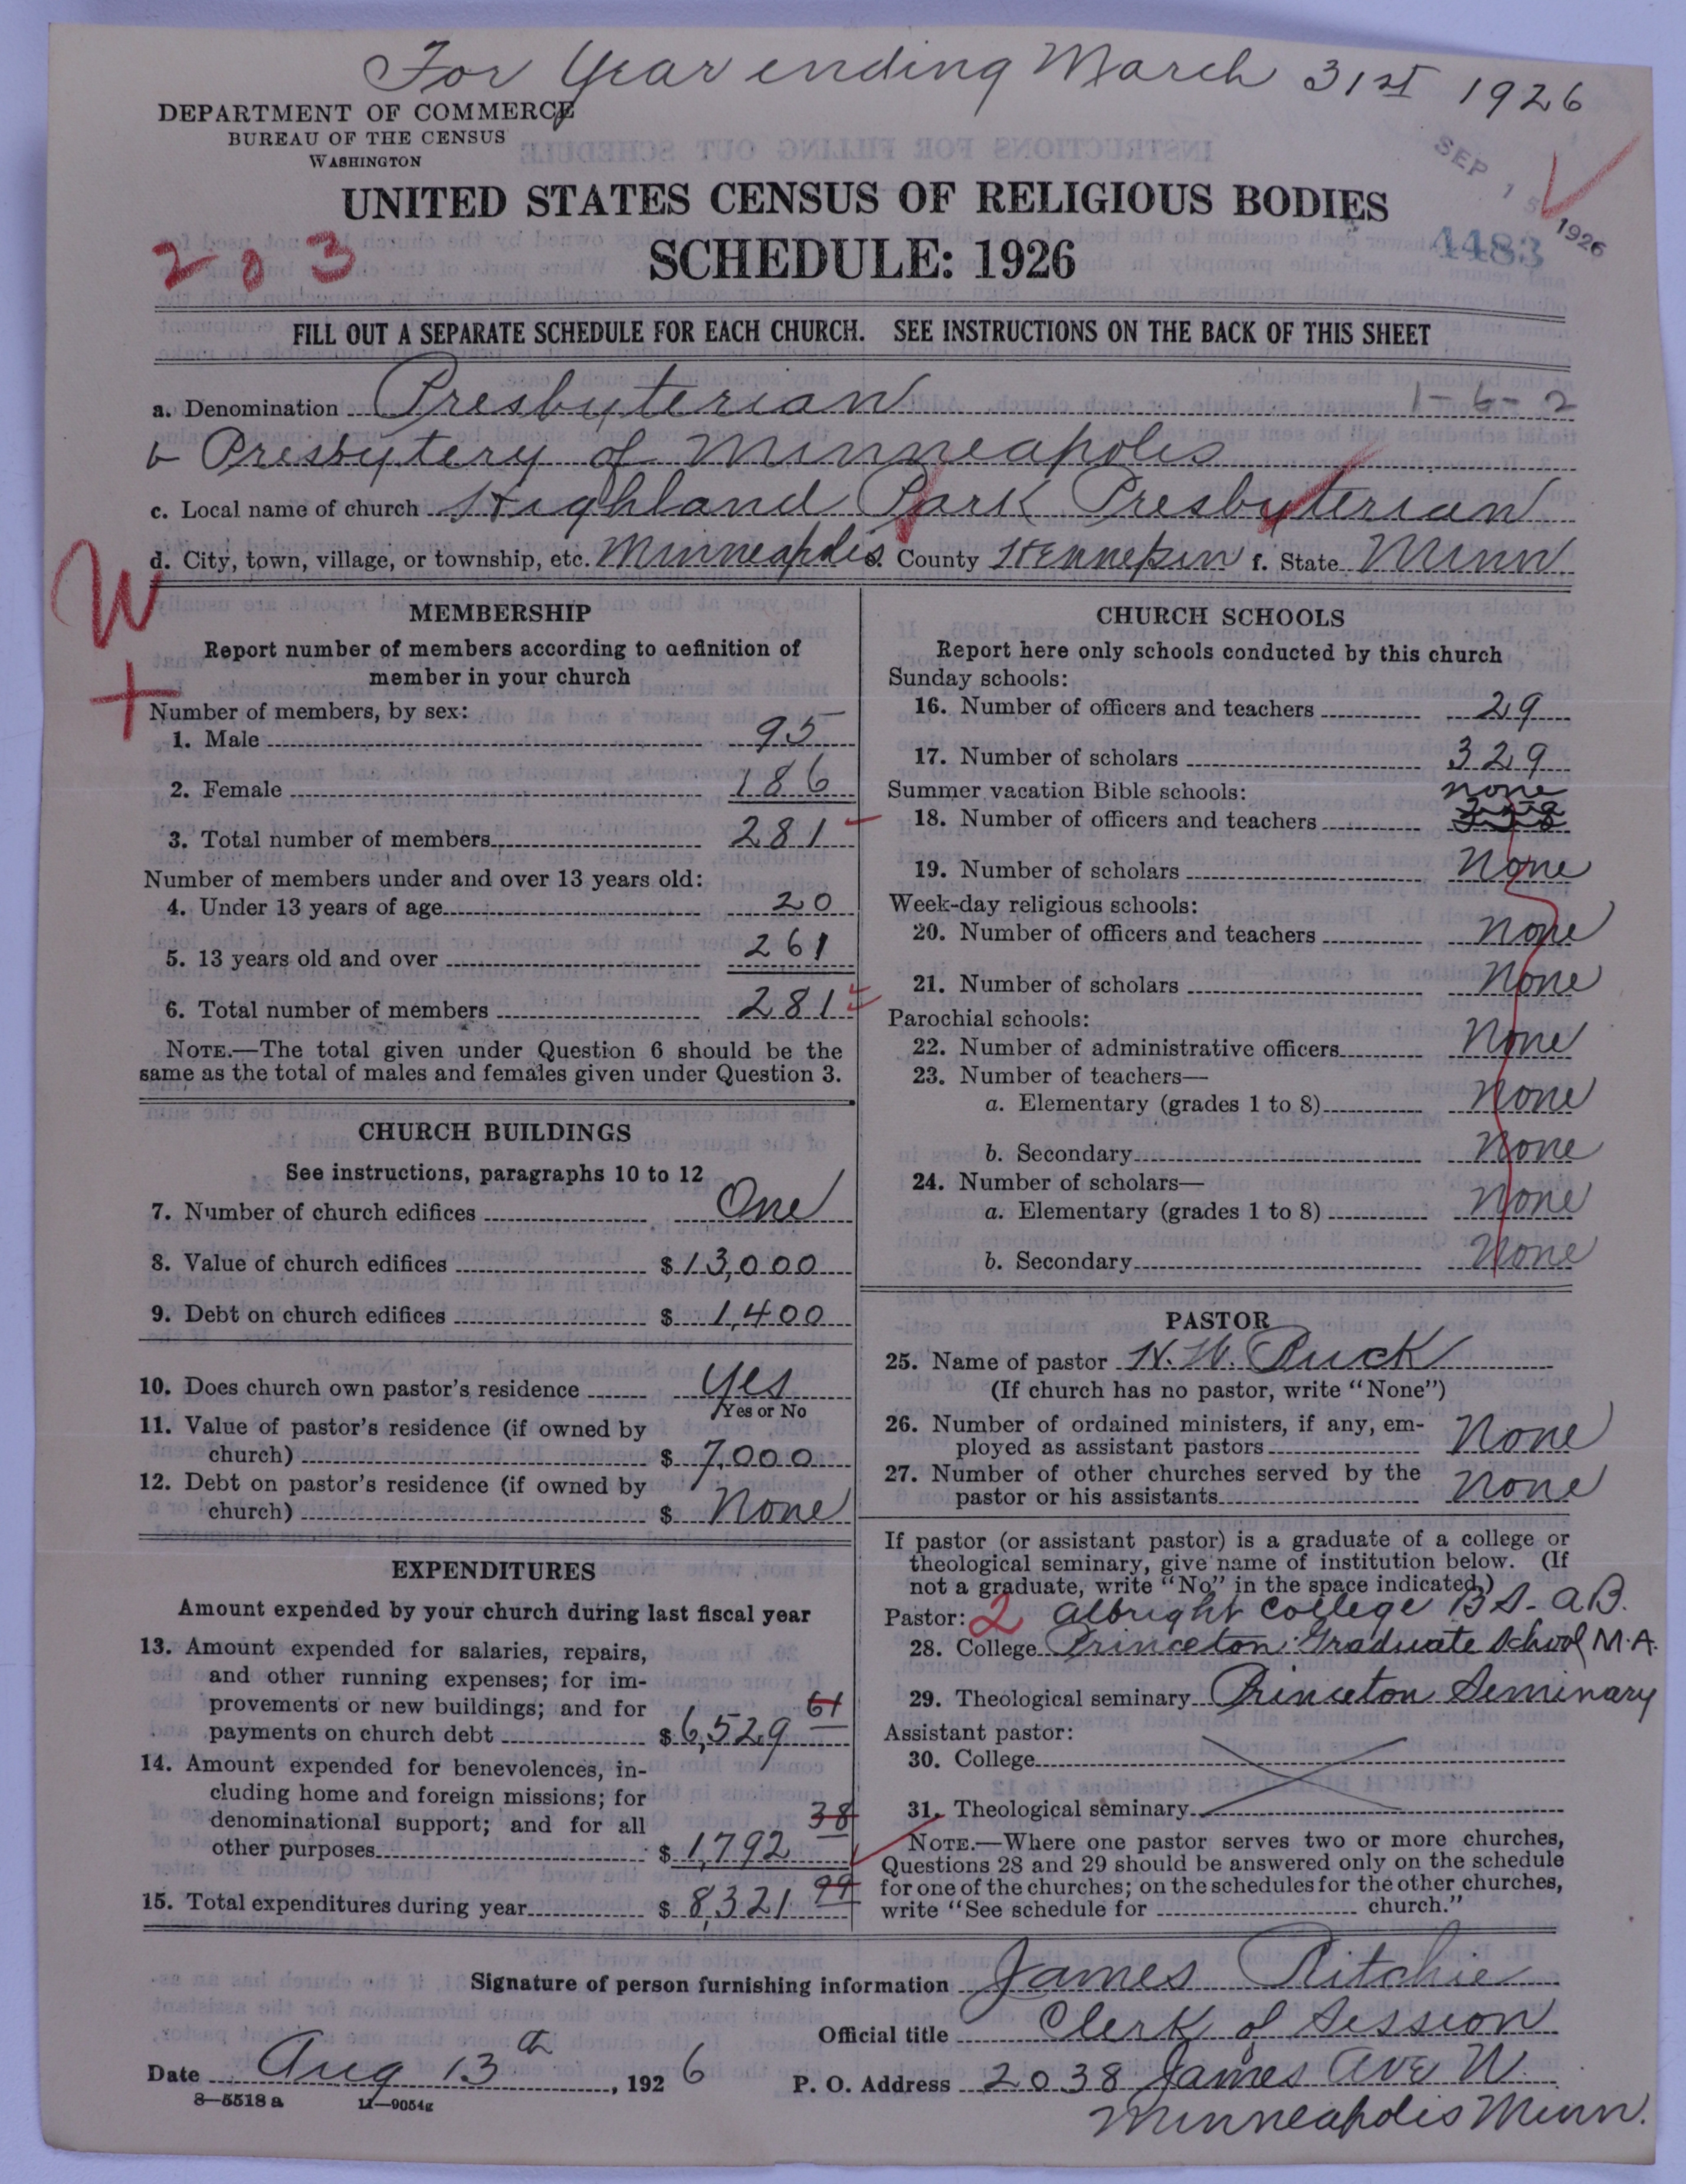 For Year ending March 31st 1926
DEPARTMENT OF COMMERCE
BUREAU OF THE CENSUS
WASHINGTON
SEP 15 1926
UNITED STATES CENSUS OF RELIGIOUS BODIES
203
SCHEDULE: 1926
4483
FILL OUT A SEPARATE SCHEDULE FOR EACH CHURCH. SEE INSTRUCTIONS ON THE BACK OF THIS SHEET
a. Denomination Presbyterian 1-6-2
b Presbytery of Minneapolis
c. Local name of church Highland Park Presbyterian
d. City, town, village, or township, etc. Minneapolis e. County Hennepin f. State Minn
W
+
MEMBERSHIP
Report number of members according to definition of
member in your church
Number of members, by sex:
1. Male 95
2. Female 186
3. Total number of members 281
Number of members under and over 13 years old:
4. Under 13 years of age 20
5. 13 years old and over 261
6. Total number of members 281
NOTE.—The total given under Question 6 should be the
same as the total of males and females given under Question 3.
CHURCH BUILDINGS
See instructions, paragraphs 10 to 12
7. Number of church edifices One
8. Value of church edifices $ 13,000
9. Debt on church edifices $ 1,400
10. Does church own pastor's residence Yes
Yes or No
11. Value of pastor's residence (if owned by
church) $ 7,000
12. Debt on pastor's residence (if owned by
church) $ None
EXPENDITURES
Amount expended by your church during last fiscal year
13. Amount expended for salaries, repairs,
and other running expenses; for im-
provements or new buildings; and for
payments on church debt $ 6,529 61
14. Amount expended for benevolences, in-
cluding home and foreign missions; for
denominational support; and for all
other purposes $ 1,792 38
15. Total expenditures during year $ 8,321 99
CHURCH SCHOOLS
Report here only schools conducted by this church
Sunday schools:
16. Number of officers and teachers 29
17. Number of scholars 329
Summer vacation Bible schools:
none
18. Number of officers and teachers 358
19. Number of scholars None
Week-day religious schools:
20. Number of officers and teachers None
21. Number of scholars None
Parochial schools:
22. Number of administrative officers None
23. Number of teachers—
a. Elementary (grades 1 to 8) None
b. Secondary None
24. Number of scholars—
a. Elementary (grades 1 to 8) None
b. Secondary None
PASTOR
25. Name of pastor H. W. Ruck
(If church has no pastor, write "None")
26. Number of ordained ministers, if any, em-
ployed as assistant pastors None
27. Number of other churches served by the
pastor or his assistants None
If pastor (or assistant pastor) is a graduate of a college or
theological seminary, give name of institution below. (If
not a graduate, write "No" in the space indicated.)
Pastor: 2 Albright College BS-AB.
28. College Princeton Graduate School M.A.
29. Theological seminary Princeton Seminary
Assistant pastor:
30. College
31. Theological seminary
NOTE.—Where one pastor serves two or more churches,
Questions 28 and 29 should be answered only on the schedule
for one of the churches; on the schedules for the other churches,
write "See schedule for church."
Signature of person furnishing information James Ritchie
Official title Clerk of Session
Date Aug 13th, 1926 P. O. Address 2038 James Ave N.
Minneapolis Minn.
8—5518 a 11—9054g